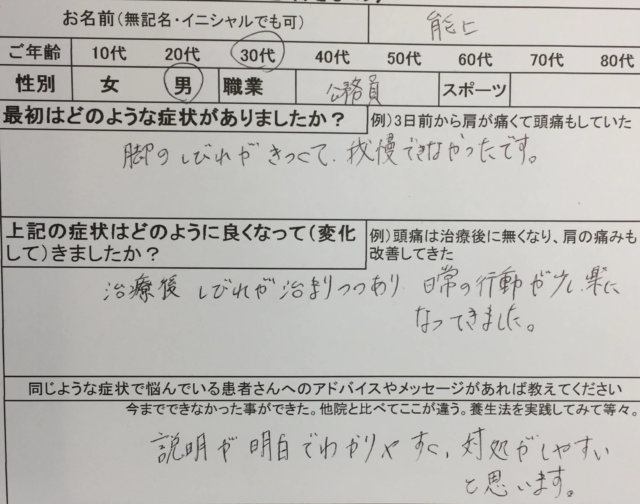 お名前(無記名・イニシャルでも可)
ご年齢 10代 20代 30代 40代 50代 60代 70代 80代
性別 女 男 職業 公務員 スポーツ
最初はどのような症状がありましたか? 例)3日前から肩が痛くて頭痛もしていた
脚のしびれがきつくて、我慢できなかったです。
上記の症状はどのように良くなって(変化 例)頭痛は治療後に無くなり、肩の痛みも
して)きましたか? 改善してきた
治療後しびれが治まりつつあり、日常の行動が少し楽に
なってきました。
同じような症状で悩んでいる患者さんへのアドバイスやメッセージがあれば教えてください
今までできなかった事ができた。他院と比べてここが違う。養生法を実践してみて等々。
説明が明白でわかりやすく、対処がしやすい
と思います。